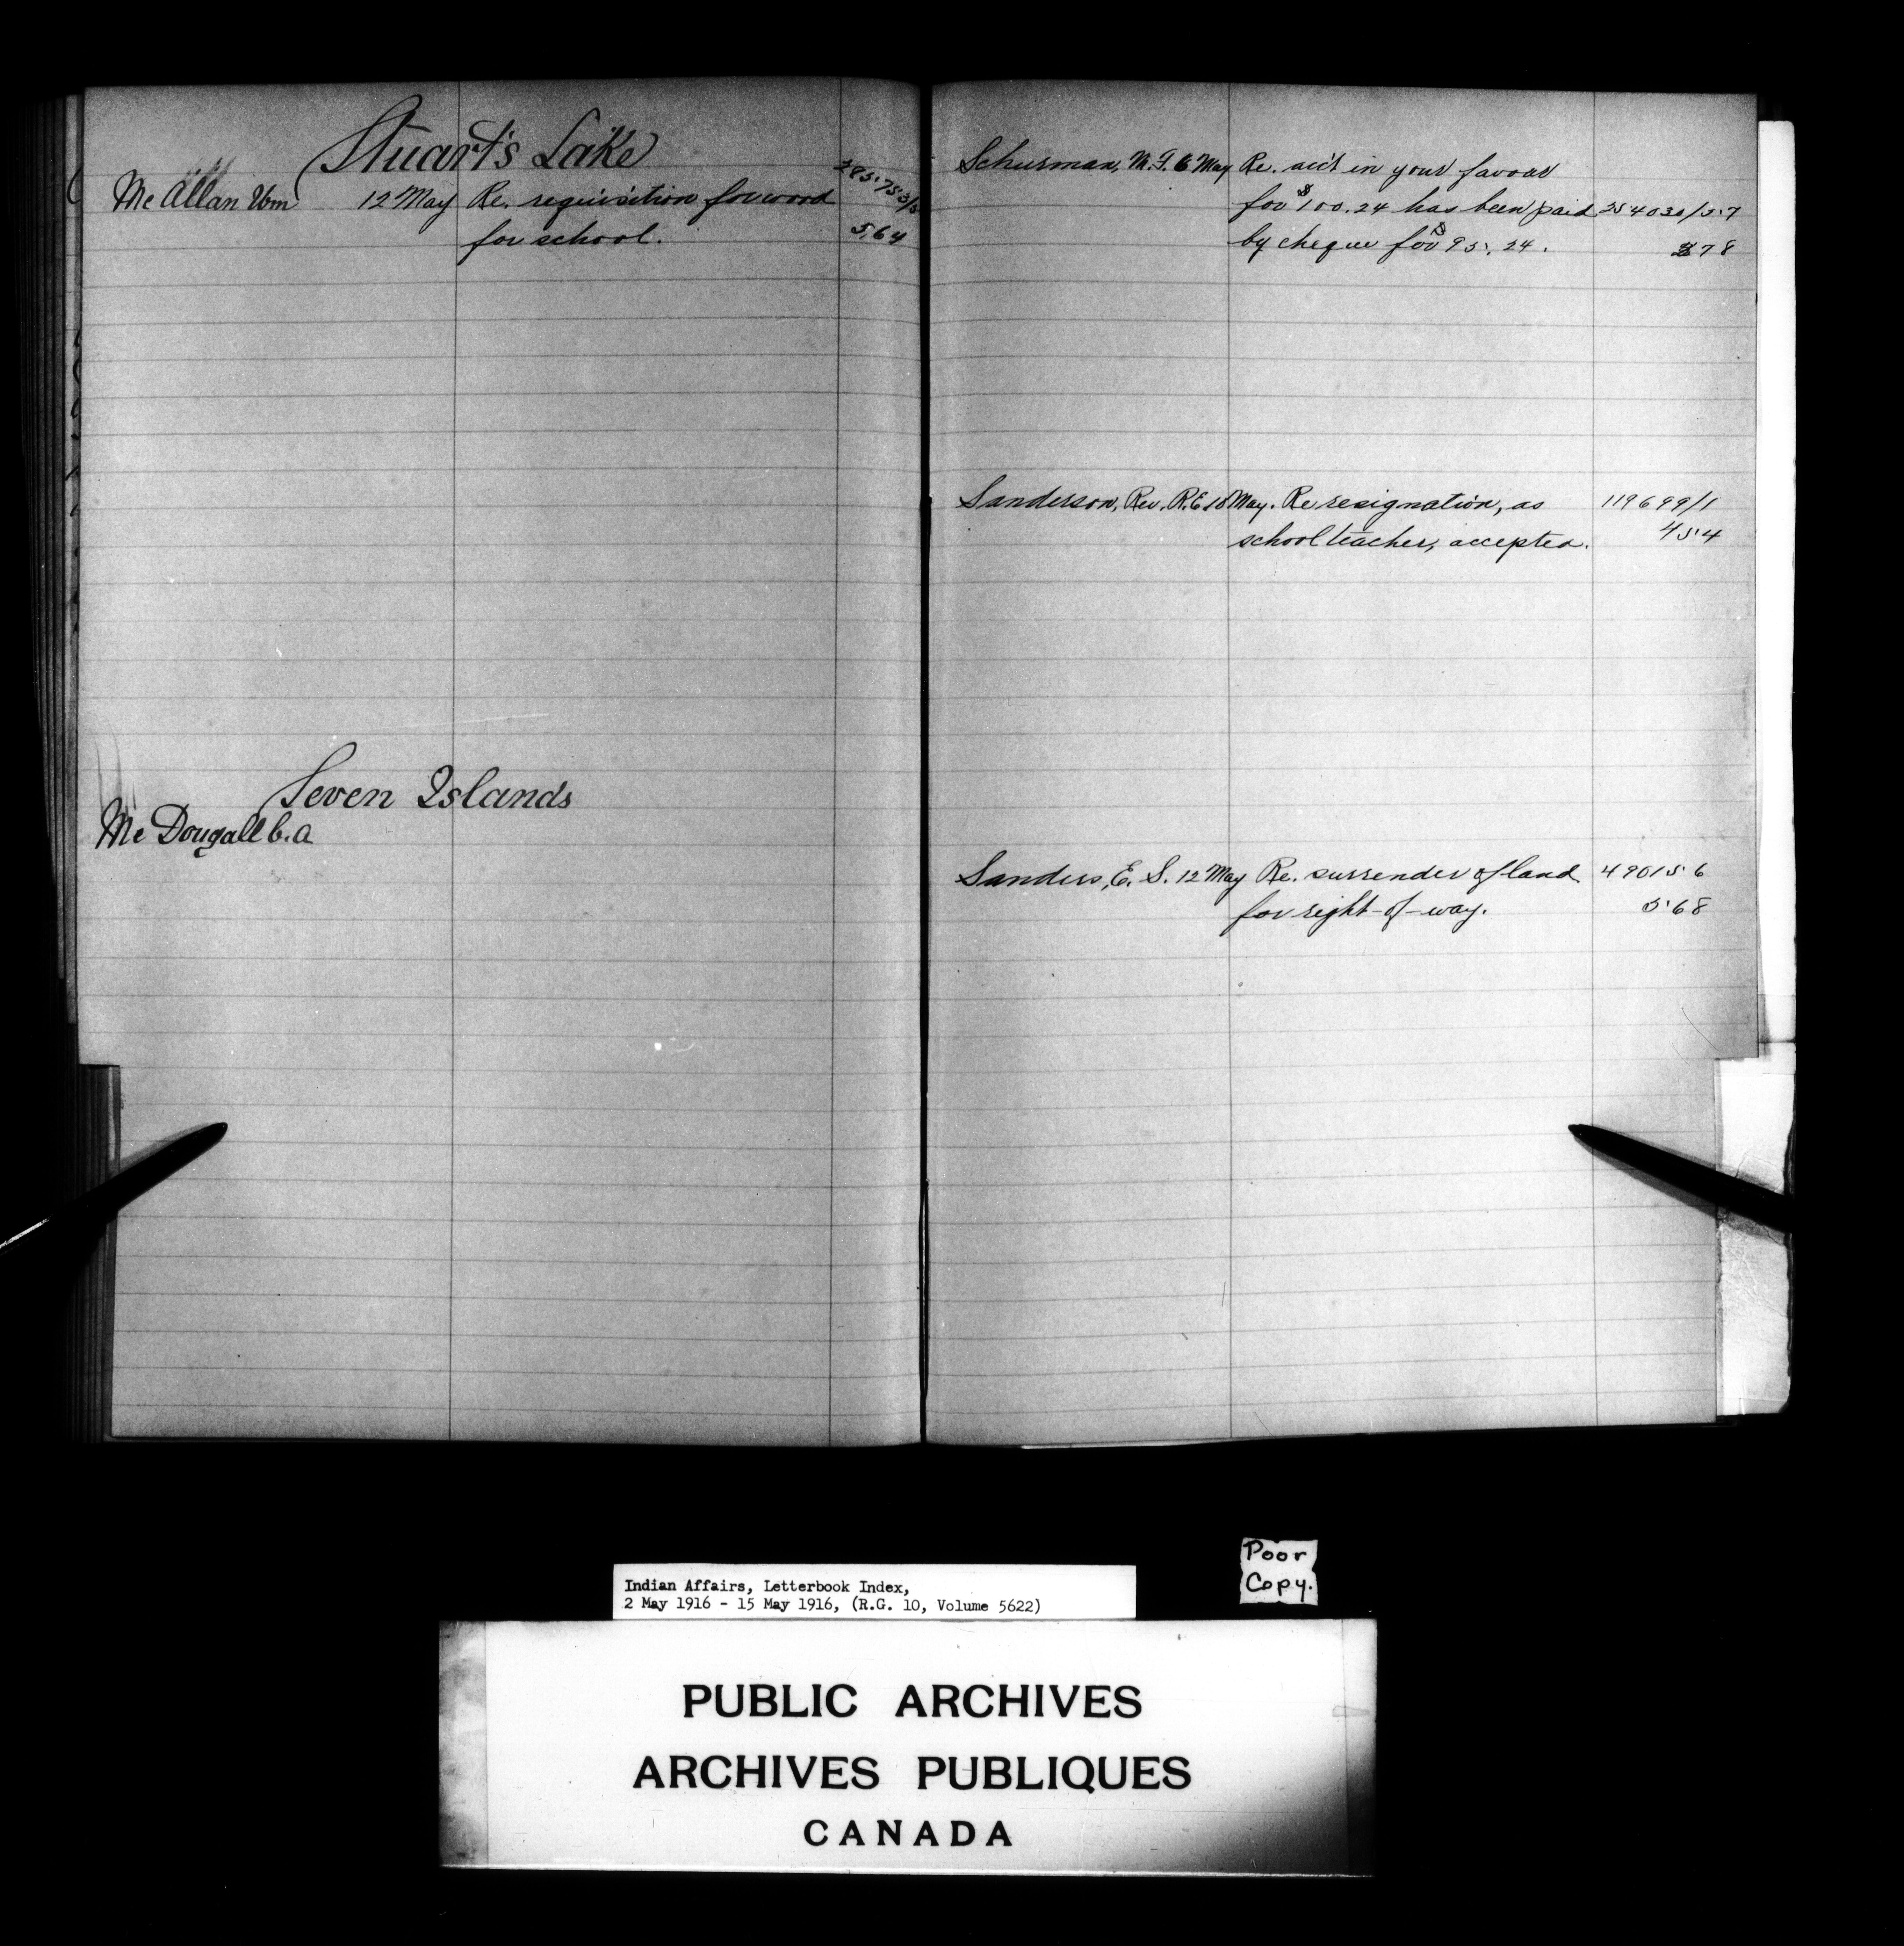 Stuart's Lake
McAllan Wm 12 May Re. requisition for wood 285753/5
for school. 564
Seven Islands
McDougall C.A
Schurman, M. F. 6 May Re. acct in your favour
for $100.24 has been paid 254030/57
by cheque for $95.24. 378
Sanderson, Rev. R.E 10 May. Re resignation, as 119699/1
school teacher, accepted. 454
Sanders, E. S. 12 May Re. surrender of land 490156
for right-of-way. 568
Poor
Copy.
Indian Affairs, Letterbook Index,
2 May 1916 - 15 May 1916, (R.G. 10, Volume 5622)
PUBLIC ARCHIVES
ARCHIVES PUBLIQUES
CANADA